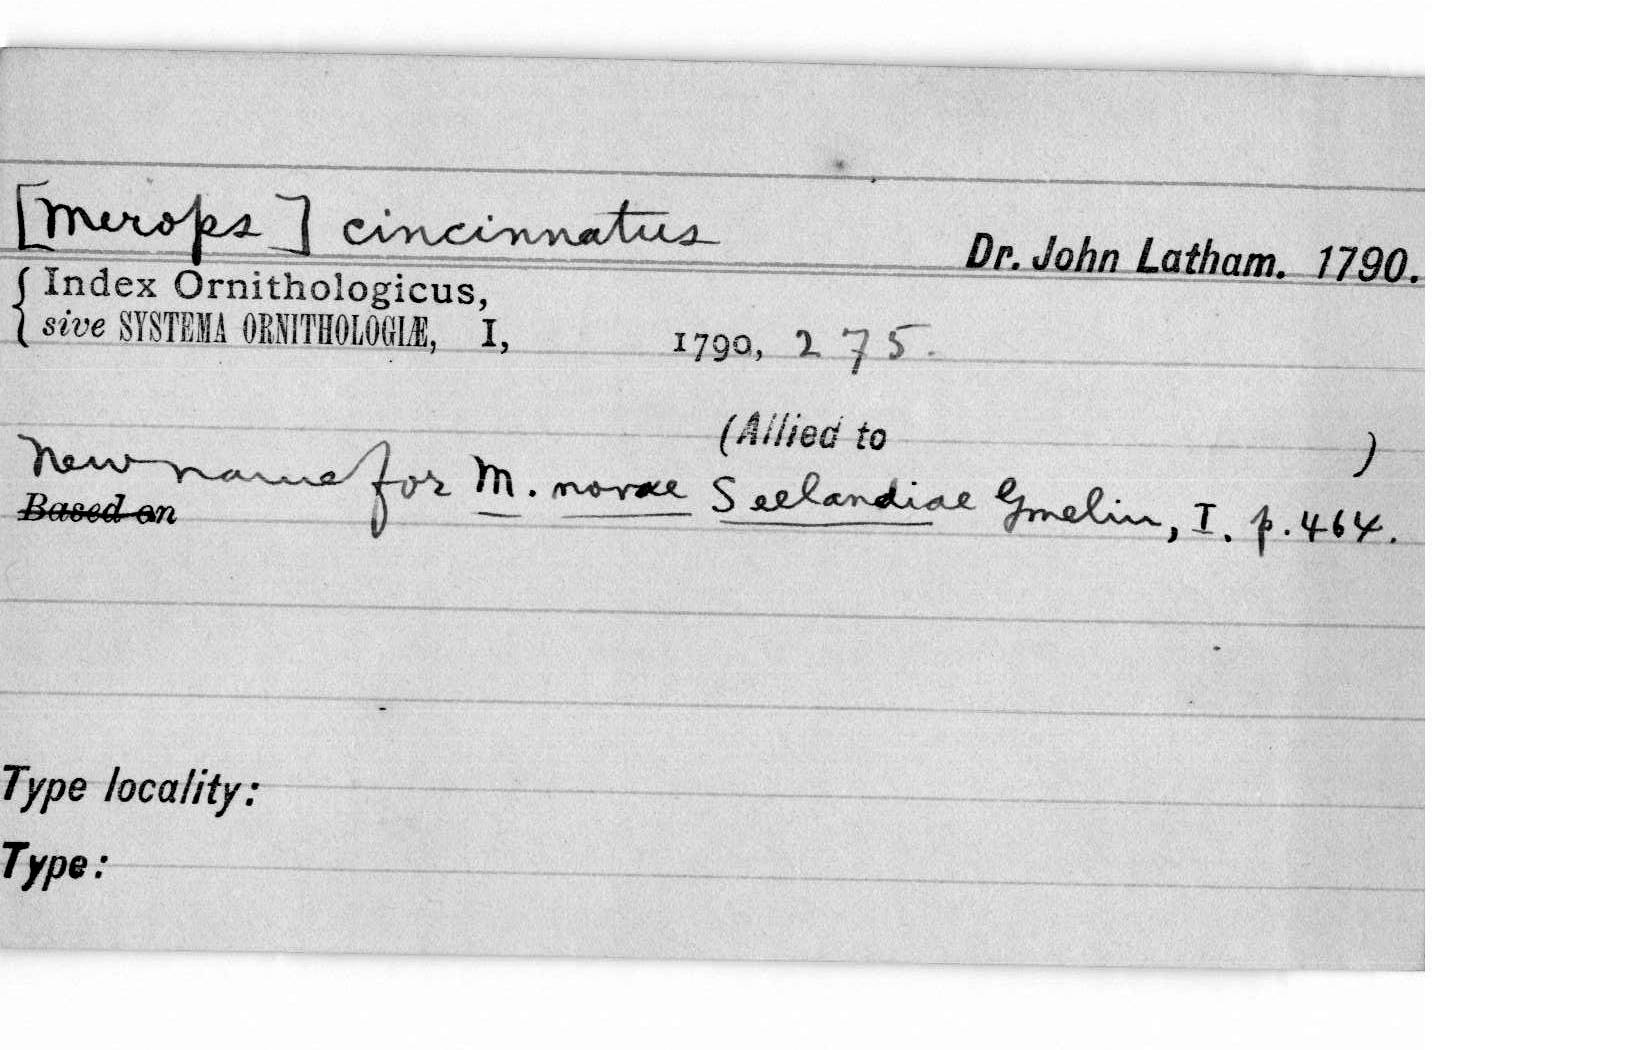 [Merops] cincinnatus
Dr. John Latham. 1790.
Index Ornithologicus,
sive SYSTEMA ORNITHOLOGIÆ, I, 1790, 275.
(Allied to )
New name for M. novae Seelandiae Gmelin, I. p. 464.
Based on
Type locality:
Type: